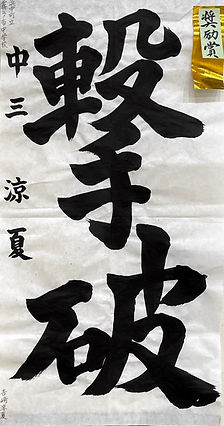 撃破
中三 涼夏
奨励賞